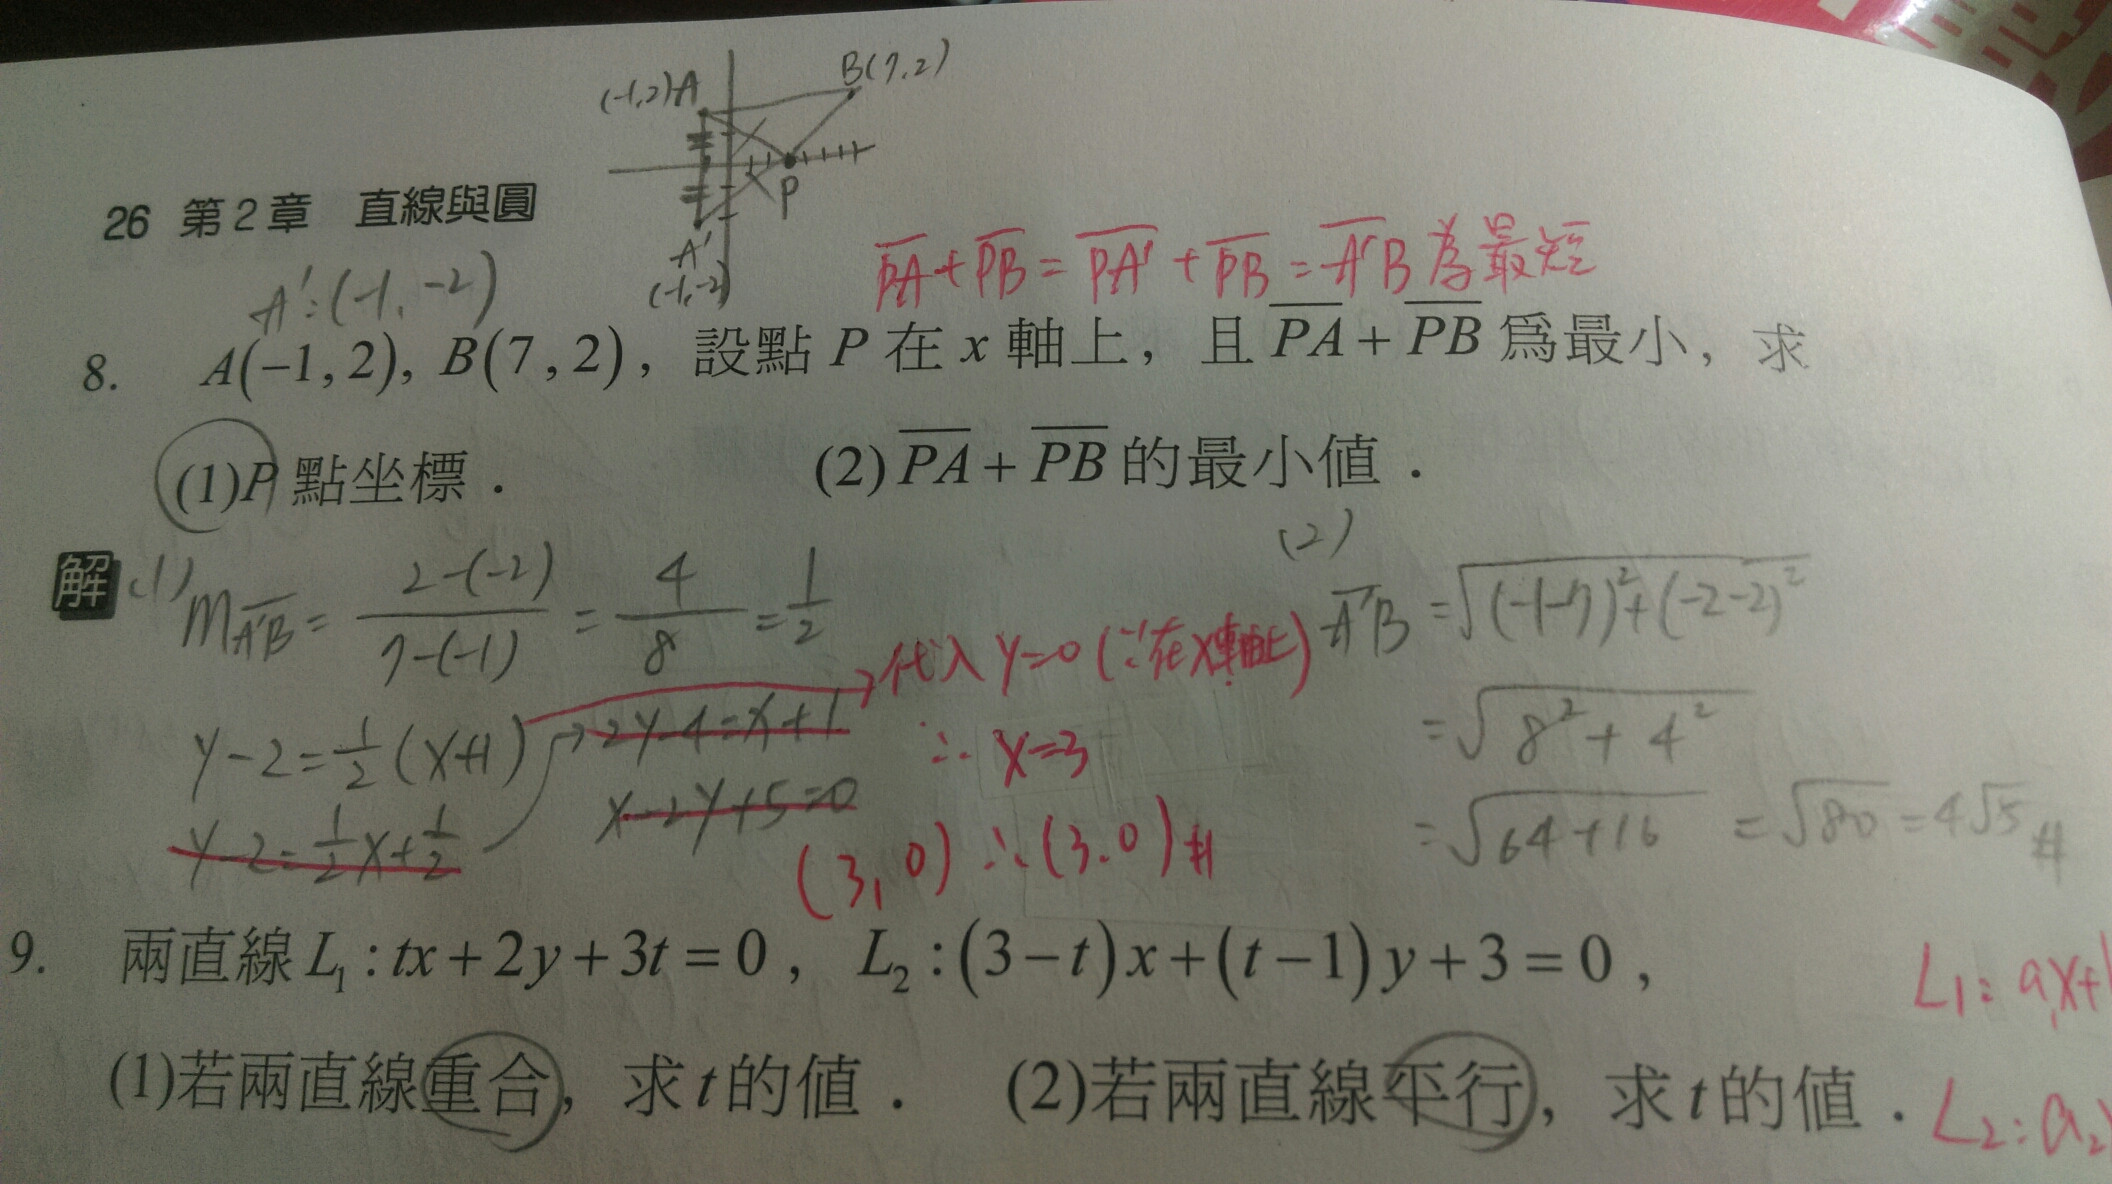 (-1,2)A
B(7,2)
P
A'
(-1,-2)
26 第2章 直線與圓
A':(-1,-2)
PA+PB=PA'+PB=A'B為最短
8. A(−1,2), B(7,2), 設點 P 在 x 軸上, 且 PA+PB 為最小, 求
(1)P 點坐標.
(2)PA+PB 的最小值.
解
(1) mA'B = 2-(-2)/7-(-1) = 4/8 = 1/2
y-2=1/2(x+1)
y-2=1/2x+1/2
→2y-4=x+1
x-2y+5=0
→代入y=0(∵在x軸上)
∴x=3
(3,0) ∴(3.0)#
(2)
A'B=√(-1-7)²+(-2-2)²
=√8²+4²
=√64+16 =√80=4√5#
9. 兩直線 L₁:tx+2y+3t=0, L₂:(3−t)x+(t−1)y+3=0,
L₁: a₁x+
(1)若兩直線重合, 求t的值. (2)若兩直線平行, 求t的值.
L₂:a₂